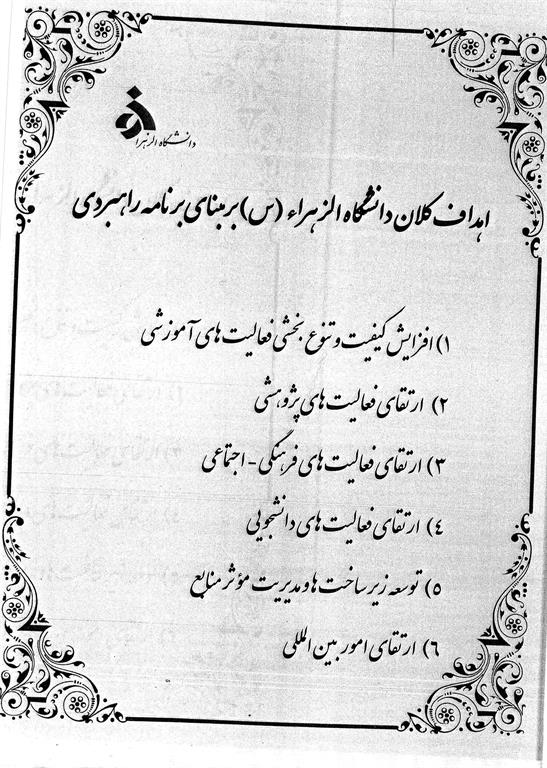 دانشگاه الزهرا
اهداف کلان دانشگاه الزهراء (س) بر مبنای برنامه راهبردی
۱) افزایش کیفیت و تنوع بخشی فعالیت های آموزشی
۲) ارتقای فعالیت های پژوهشی
۳) ارتقای فعالیت های فرهنگی - اجتماعی
٤) ارتقای فعالیت های دانشجویی
۵) توسعه زیر ساخت ها و مدیریت مؤثر منابع
٦) ارتقای امور بین المللی